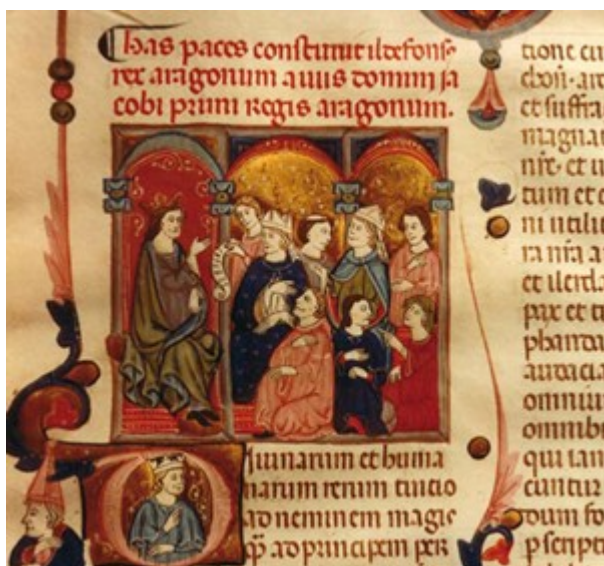 has paces constituit ildefons'
rex aragonum auus domini ja
cobi primi regis aragonum.
iuinarum et huma
narum rerum tuicio
ad neminem magis
q̃ ad principem per
tione
et suffra
magna
nr̃e. et
tum et
ni utili
ra nr̃a a
et ilerd
pax et
audacia
omniu
omnib
qui tan
dum fo
p script